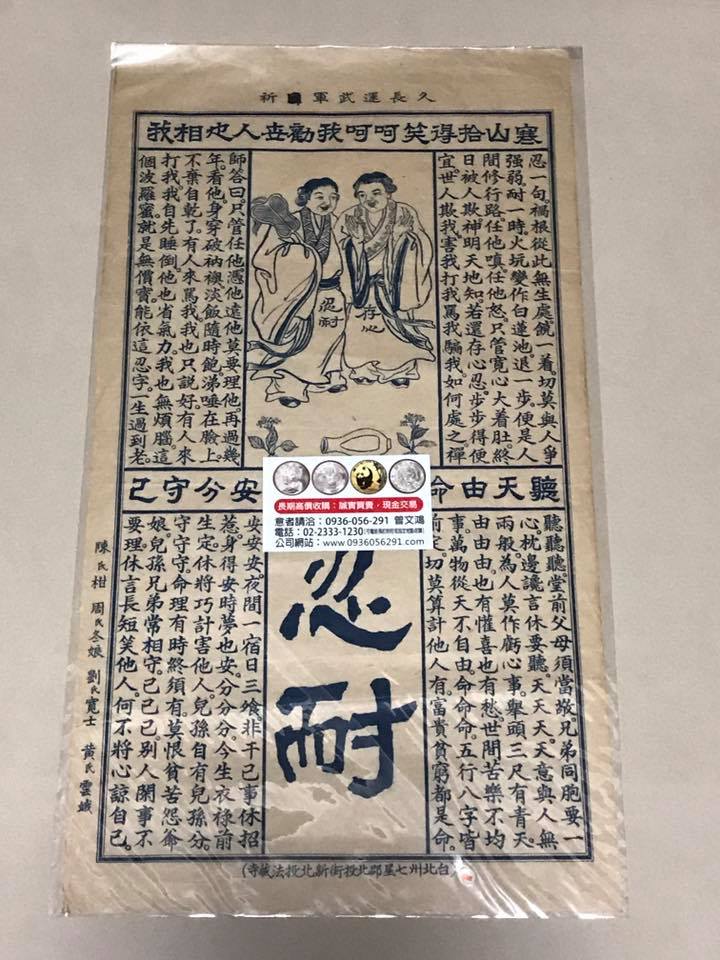 祈 軍武運長久
寒山拾得笑呵呵我勸世人也相我
忍一句。禍根從此無生處。饒一着。切莫與人爭
强弱。耐一時。火坑變作白蓮池。退一步。便是人
間修行路。任他嗔。任他怒。只管寬心大着肚。終
日被人欺。神明天地知。若還存心忍。步步得便
宜。世人欺我。害我。打我。罵我。騙我。如何處之。禪
存心
忍耐
師答曰。只管任他。憑他。遠他。莫要理他。再過幾
年。看他。身穿破衲襖。淡飯隨時飽。涕唾在臉上。
不棄自乾了。有人來罵我。我也只說好。有人來
打我。我自先睡倒。他也省氣力。我也無煩腦。這
個波羅蜜。就是無價寶。能依這忍字。一生過到老。
聽天由命
安分守己
長期高價收購：誠實買賣，現金交易
意者請洽：0936-056-291 曾文鴻
電話：02-2333-1230
公司網站：www.0936056291.com
聽聽聽。堂前父母須當敬。兄弟同胞要一
心。枕邊讒言休要聽。天天天。天意與人無
兩般。為人莫作虧心事。舉頭三尺有青天。
由由由。也有懽喜也有愁。世間苦樂不均
事。萬物從天不自由。命命命。五行八字皆
前定。切莫算計他人有。富貴貧窮都是命。
忍耐
安安安。夜間一宿日三飱。非干己事休招
惹。身得安時夢也安。分分分。今生衣祿前
生定。休將巧計害他人。兒孫自有兒孫分。
守守守。命理有時終須有。莫恨貧苦怨爺
娘。兒孫兄弟常相守。己己己。別人閑事不
要理。休言長短笑他人。何不將心諒自己。
陳氏柑 周氏冬娘 劉氏寬士 黃氏雲
(台北州七星郡北投街新北投法藏寺)